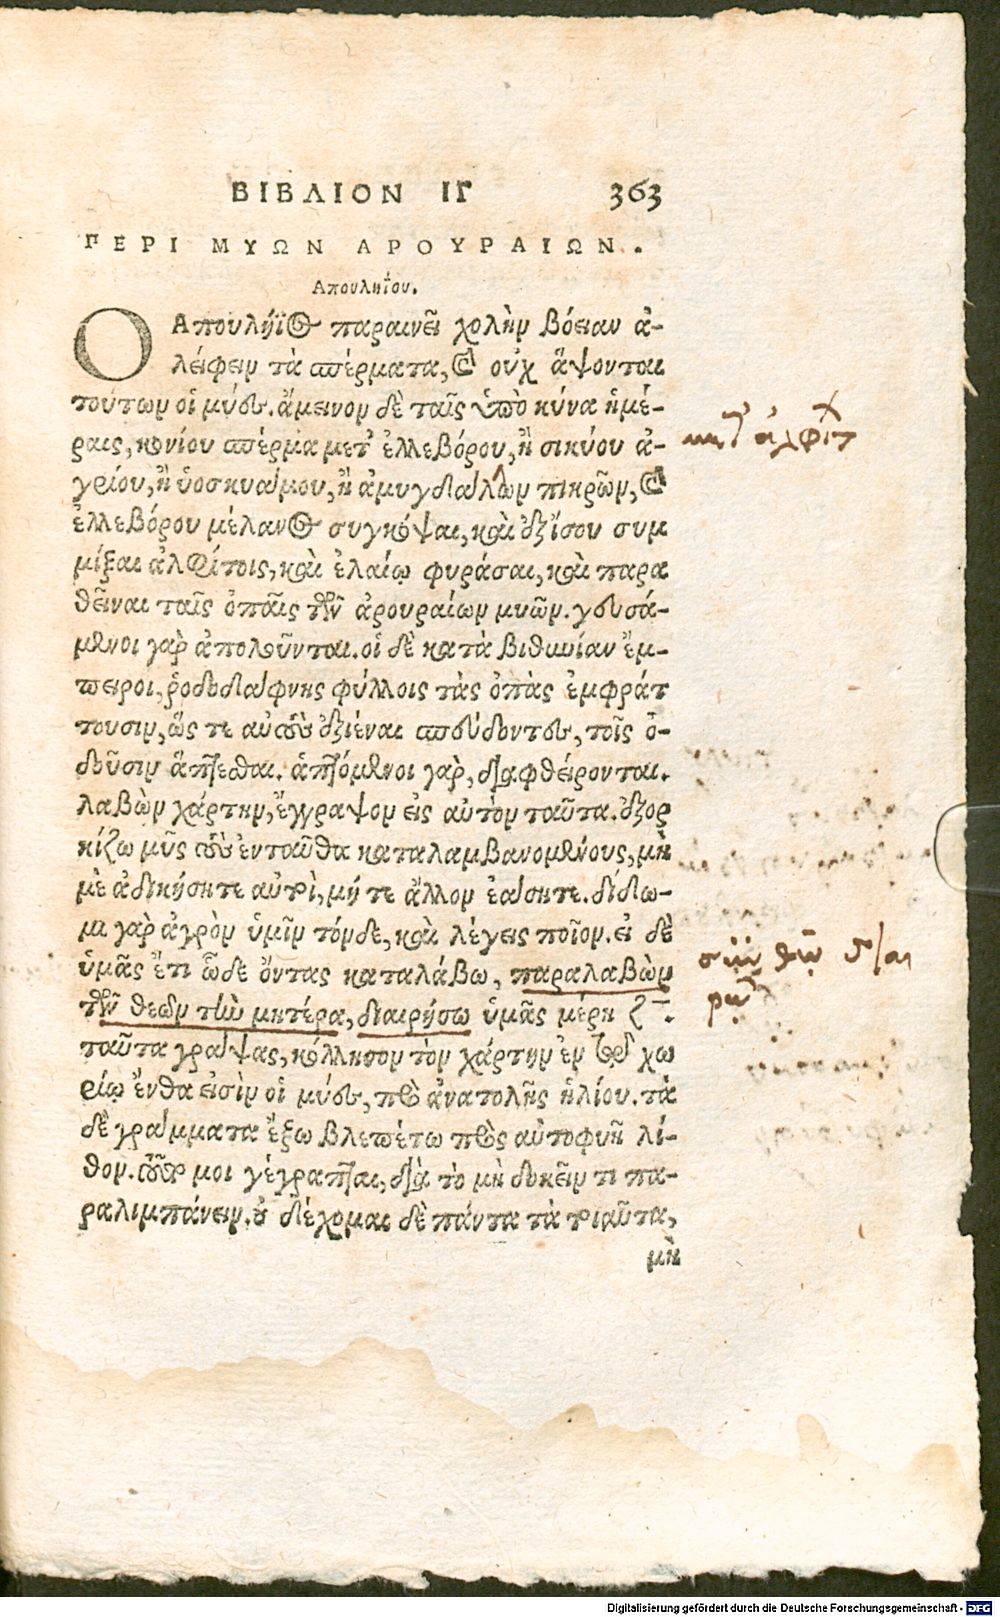 ΒΙΒΛΙΟΝ ΙΓ 363
ΠΕΡΙ ΜΥΩΝ ΑΡΟΥΡΑΙΩΝ.
Απουληΐου.
Ο Απουλήϊος παραινεῖ χολὴν βόειαν ἀ-
λείφειν τὰ σπέρματα, καὶ οὐχ ἅψονται
τούτων οἱ μύες. ἄμεινον δὲ ταῖς ὑπὸ κύνα ἡμέ-
ραις, κωνίου σπέρμα μετ' ἐλλεβόρου, ἢ σικύου ἀ-
γρίου, ἢ ὑοσκυάμου, ἢ ἀμυγδάλων πικρῶν, καὶ
ἐλλεβόρου μέλανος συγκόψαι, καὶ ἐξίσου συμ
μίξαι ἀλφίτοις, καὶ ἐλαίῳ φυράσαι, καὶ παρα
θεῖναι ταῖς ὀπαῖς τῶν ἀρουραίων μυῶν. γευσά-
μενοι γὰρ ἀπολοῦνται. οἱ δὲ κατὰ βιθυνίαν ἔμ-
πειροι, ῥοδοδάφνης φύλλοις τὰς ὀπὰς ἐμφράτ
τουσιν, ὥς τε αὐτοὺς ἐξιέναι σπεύδοντες, τοῖς ὀ-
δοῦσιν ἅπτεσθαι. ἁπτόμενοι γὰρ, διαφθείρονται.
λαβὼν χάρτην, ἔγγραψον εἰς αὐτὸν ταῦτα. ἐξορ
κίζω μῦς τοὺς ἐνταῦθα καταλαμβανομένους, μὴ
μὲ ἀδικήσητε αὐτοὶ, μή τε ἄλλον ἐάσητε. δίδω-
μι γὰρ ἀγρὸν ὑμῖν τόνδε, καὶ λέγεις ποῖον. εἰ δὲ
ὑμᾶς ἔτι ὧδε ὄντας καταλάβω, παραλαβὼν
τῶν θεῶν τὴν μητέρα, διαιρήσω ὑμᾶς μέρη ζ.
ταῦτα γράψας, κόλλησον τὸν χάρτην ἐν τῷ χω
ρίῳ ἔνθα εἰσὶν οἱ μύες, πρὸ ἀνατολῆς ἡλίου. τὰ
δὲ γράμματα ἔξω βλεπέτω πρὸς αὐτοφυῆ λί-
θον. ταῦτα μοι γέγραπται, διὰ τὸ μὴ δοκεῖν τι πα-
ραλιμπάνειν. οὐ δέχομαι δὲ πάντα τὰ τοιαῦτα,
μὴ